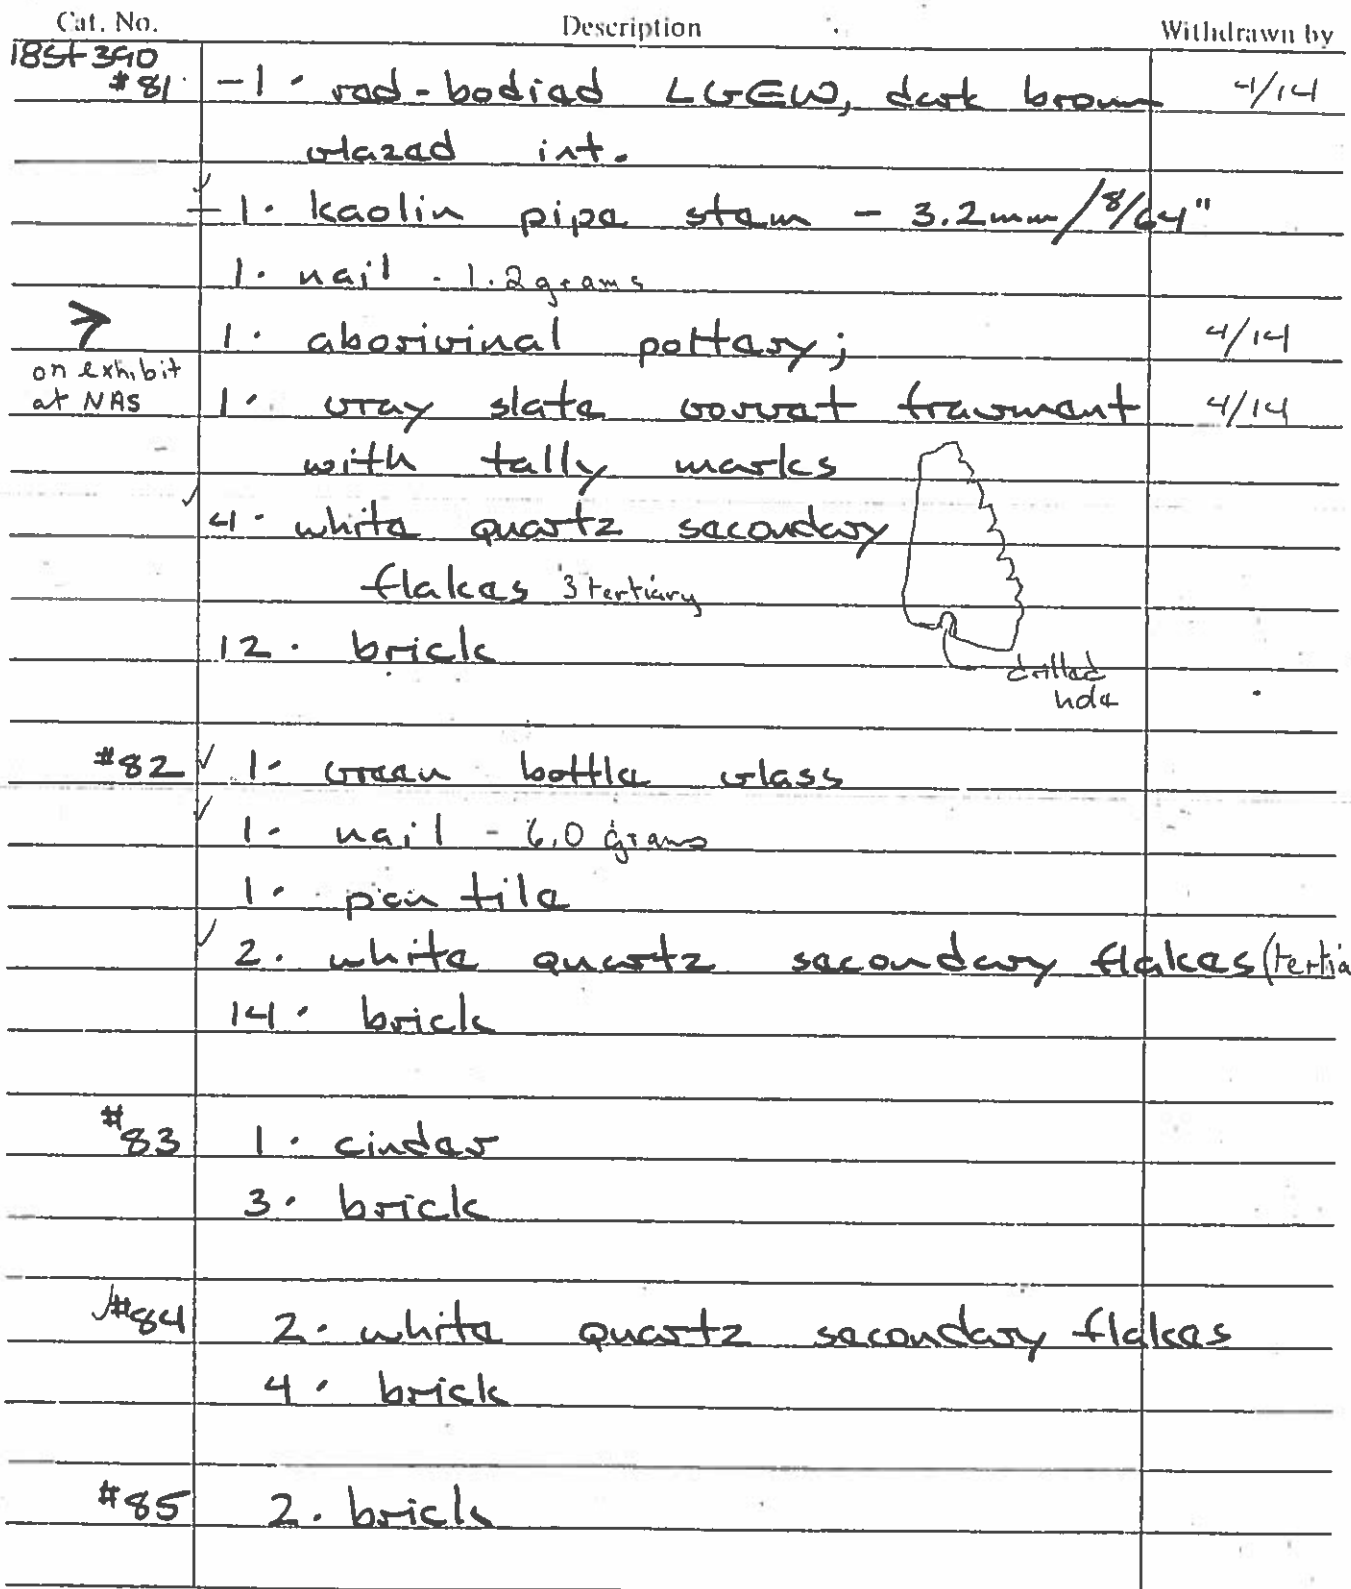 Cat. No. Description Withdrawn by
18St 390
#81 -1. red-bodied LGEW, dark brown 4/14
glazed int.
✓
-1. kaolin pipe stem - 3.2mm/8/64"
1. nail - 1.2 grams
> 1. aboriginal pottery; 4/14
on exhibit
at NAS 1. gray slate gorget fragment 4/14
with tally marks
✓ 4. white quartz secondary
flakes 3 tertiary
12. brick
drilled
hole
#82 ✓ 1. green bottle glass
✓ 1. nail - 6.0 grams
1. pan tile
✓ 2. white quartz secondary flakes (tertia
14. brick
#83 1. cinder
3. brick
✓#84 2. white quartz secondary flakes
4. brick
#85 2. brick